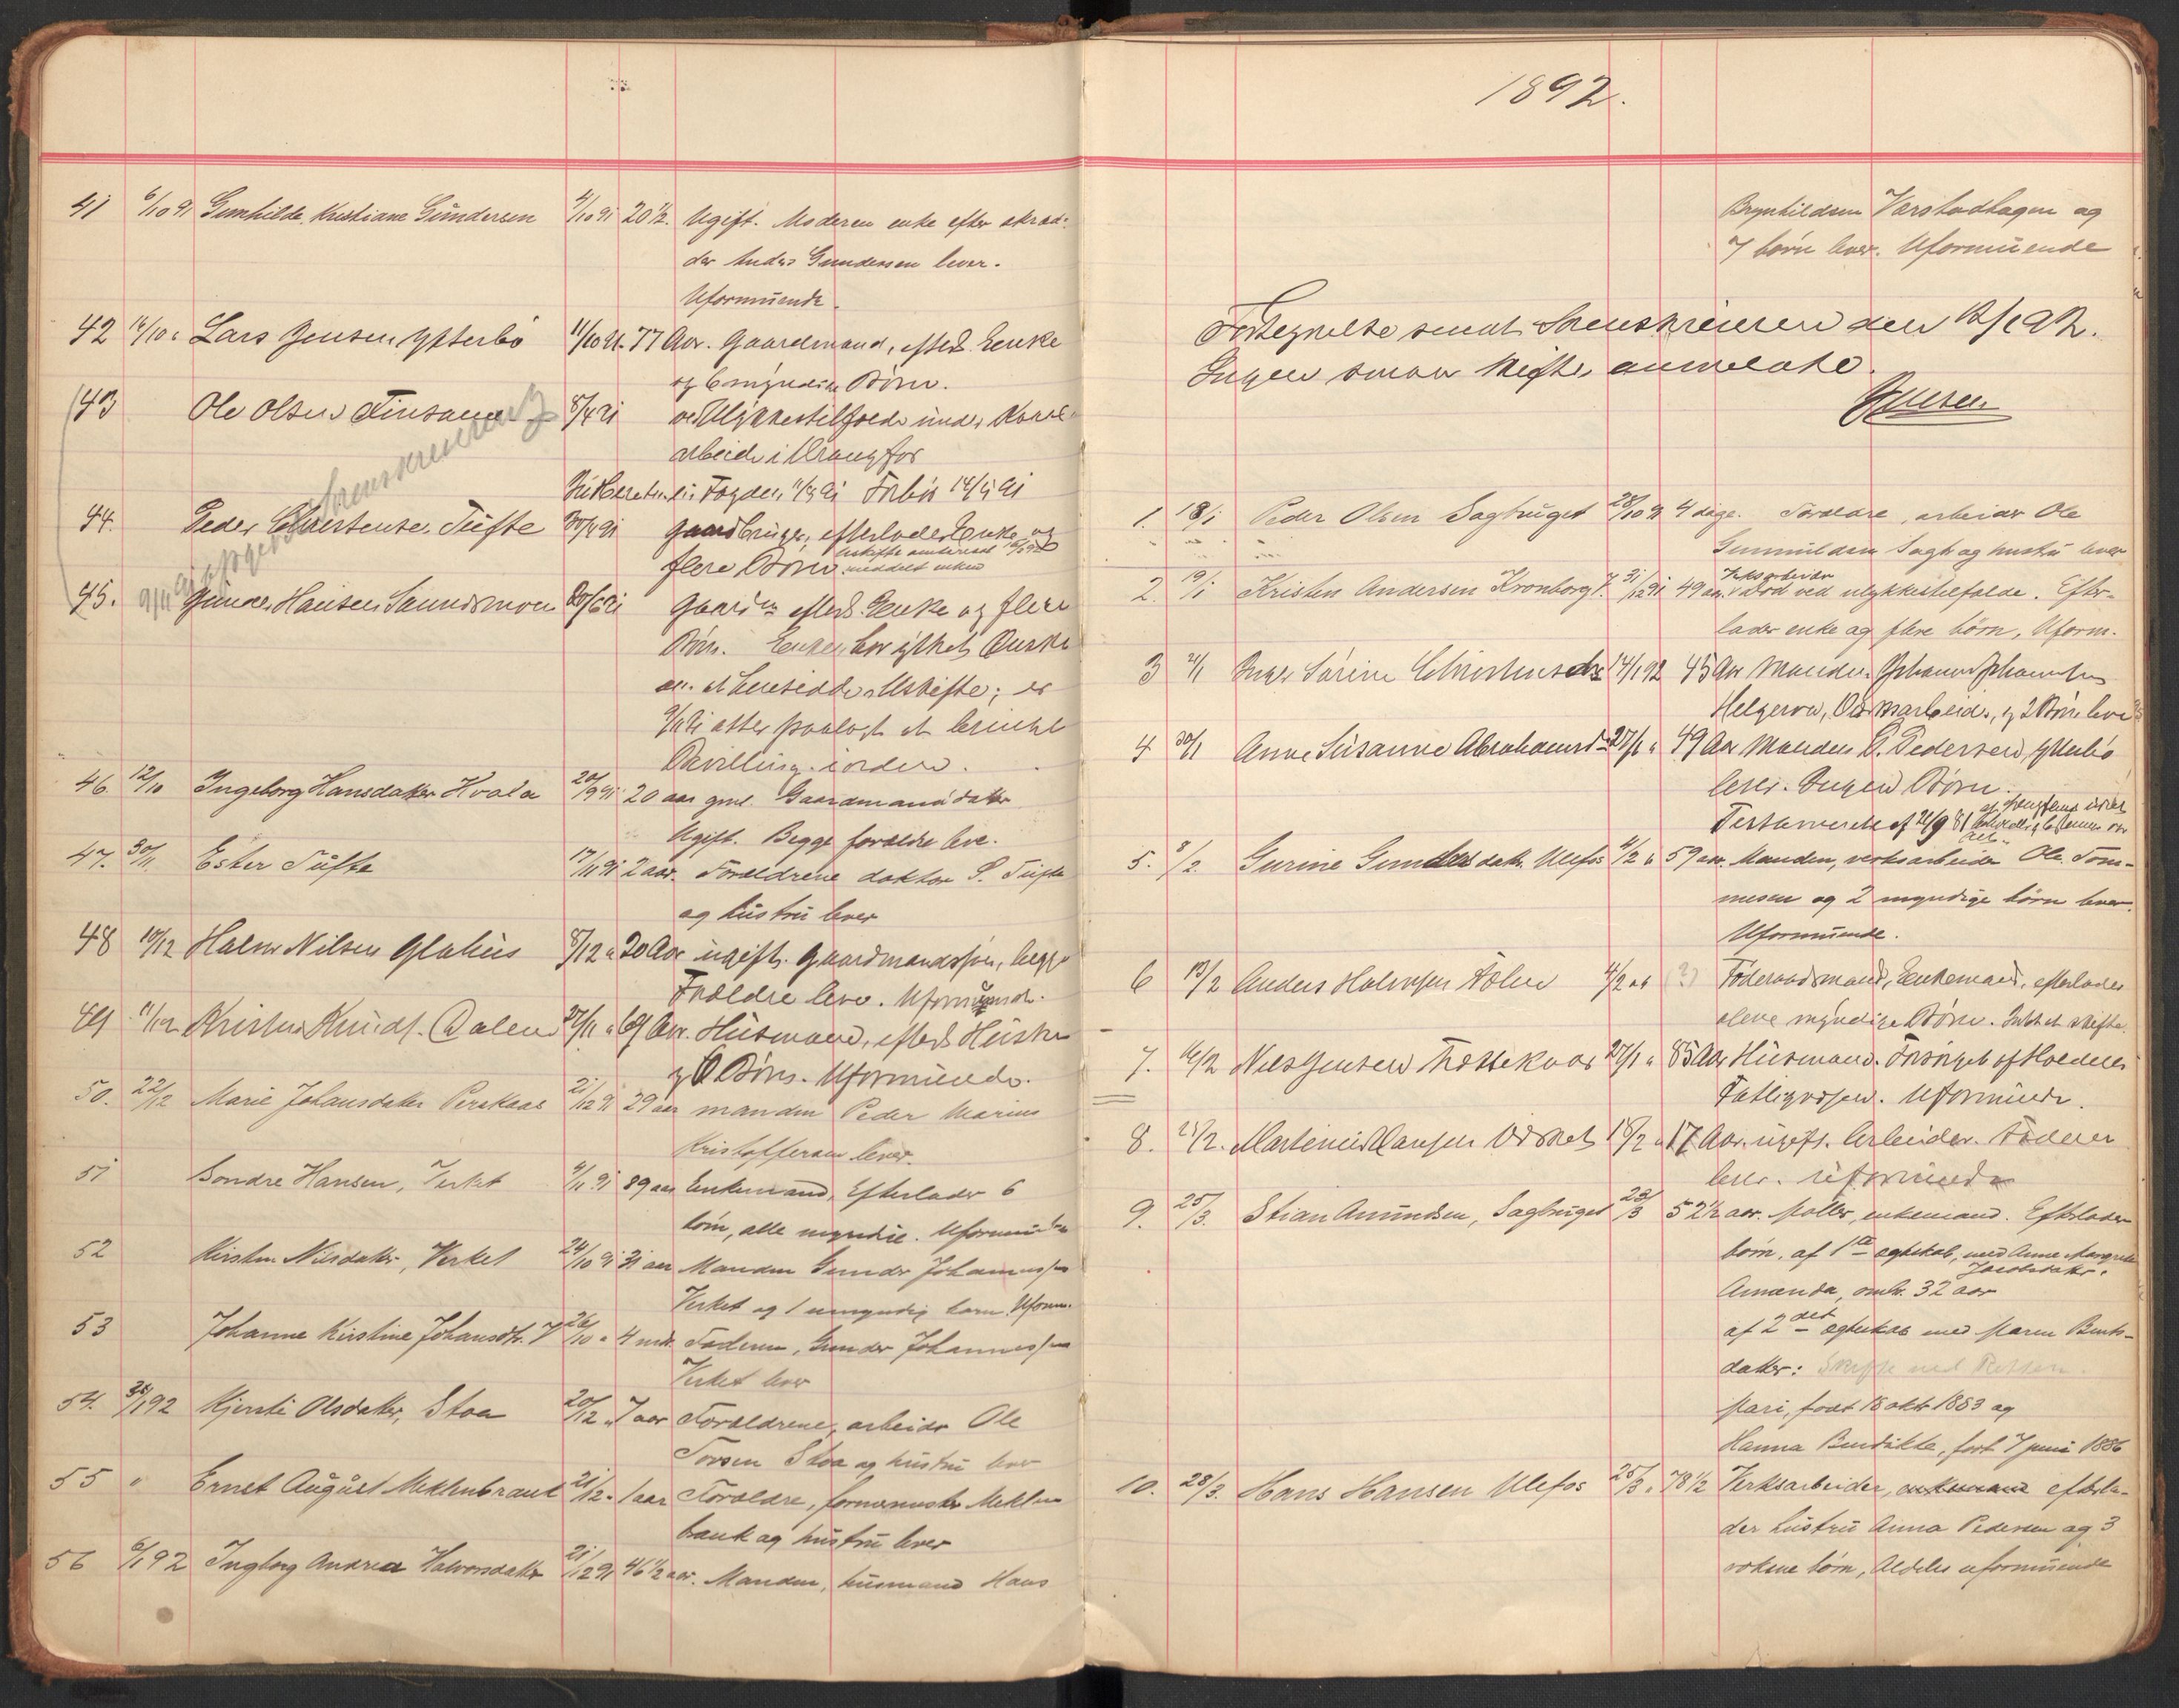 41 6/10 91 Gunhilde Kristiane Gundersen 4/10 91 20 1/2. Ugift. Moderen enke efter skræd-
der Anders Gundersen lever.
Uformuende.
42 14/10 " Lars Jensen Ytterbö 11/10 91. 77 Aar. Gaardmand, efterl. Enke
og 6 myndige Börn.
43 Ole Olsen Tinsand 8/4 91 ved Ulykkestilfælde under
arbeide i Vrangfos
Fogden 14/5 91
44. Peder Christensen Tufte 30/4 91 gaardbruger, efterlader Enke og
flere Börn meddelt enken
45. Gunder Hansen Saundsmoen 20/6 91 Gaardm. efterl. Enke og flere
Börn. Enken har
Uskifte; er
9/11 91 atter paalagt at bringe
Bevilling i orden.
46 12/10 Ingeborg Hansdatter Hvala 20/9 91 20 aar gml. Gaardmandsdatter
Ugift. Begge forældre leve.
47. 30/11. Ester Tufte 17/11 91 2 aar. Forældrene doktor S. Tufte
og hustru lever
48 10/12 Halvor Nilsen Glahus 8/12 " 20 Aar ugift. Gaardmandssön, begge
Forældre leve. Uformuende.
49 11/12 Kristen Knuds. Dalen 27/11 " 69 Aar. Husmand, efterl. Hustru
og 6 Börn. Uformuende.
50. 22/12 Marie Johansdatter Perskaas 21/12 91 29 aar manden Peder Marius
Kristoffersen lever.
51 Sondre Hansen, Verket 4/11 91 89 aar Enkemand, Efterlader 6
börn, alle myndige. Uformuende
52 Kirsten Nilsdatter, Verket 24/10 91 31 aar Manden Gunder Johannessen
Verket og 1 umyndig barn. Uform.
53 Johanne Kirstine Johansdtr. V. 26/10 " 4 mdr. Faderen, Gunder Johannessen
Verket lever
54. 3/1 92 Kjersti Olsdatter, Stoa 20/12 " 7 aar Forældrene, arbeider Ole
Torsen Stoa og hustru lever
55 " Ernst August Meklenbrauk 21/12 " 1 aar Forældre, formermester Meklen
brauk og hustru lever
56 6/1 92 Ingborg Andrea Halvorsdatter 21/12 91 46 1/2 aar. Manden, husmand Hans
1892.
Brynhildsen Varstadhagen og
7 börn lever. Uformuende
Fortegnelse sendt Sorenskriveren den 12/1 92.
Ingen smaa skifter anmeldte.
Jensen
1. 18/1 Peder Olsen Sagbruget 28/10 91 4 dage. Forældre, arbeider Ole
Gunnuldsen Sagb og hustru lever
2. 19/1 Kristen Andersen Kronborg V. 31/12 91 49 aar. Verksarbeider Död ved ulykkestilfælde. Efter-
lader enke og flere börn, Uform.
3 21/1 Inger Sörine Christensdr 14/1 92 45 Aar Manden Johannes Johannessen
Helgeroa, Værksarbeider, og 2 Börn leve
4 30/1 Anne Susanne Abrahamsd 27/1 " 49 Aar Manden C. Pedersen, Ytterbö
lever. Ingen Börn.
Testamente af 21/9 81
5. 8/2. Gurine Gundersdatr. Ulefos 4/2 " 59 aar. Manden, verksarbeider Ole Tom-
mesen og 2 myndige börn lever.
Uformuende.
6 13/2 Anders Halvorsen Folen 4/2 " (?) Föderaadsmand, Enkemand, efterlader
myndige Börn. Intet at skifte.
7. 16/2 Nils Jensen Træskaas 27/1 " 85 Aar Husmand. Forsörget af Holdens
Fattigvæsen. Uformuende.
8. 25/2. Martinius Hansen Værket 18/2 " 17 Aar. ugift. Arbeider. Faderen
lever. uformuende
9. 25/3. Stian Amundsen, Sagbruget 23/3 52 1/2 aar. Möller, enkemand. Efterlader
börn, af 1ste egteskab, med Anne Margrete
Jacobsdatter.
Amanda, omtr. 32 aar
af 2det egteskab med Maren Bents-
datter: Skifte ved Retten
Mari, födt 18 okt 1883 og
Hanna Bendikte, födt 7 juni 1886
10. 28/3. Hans Hansen Ulefos 25/3 " 78 1/2 Verksarbeider, enkemand efterla-
der hustru Anna Pedersen og 3
voksne börn, Aldeles uformuende